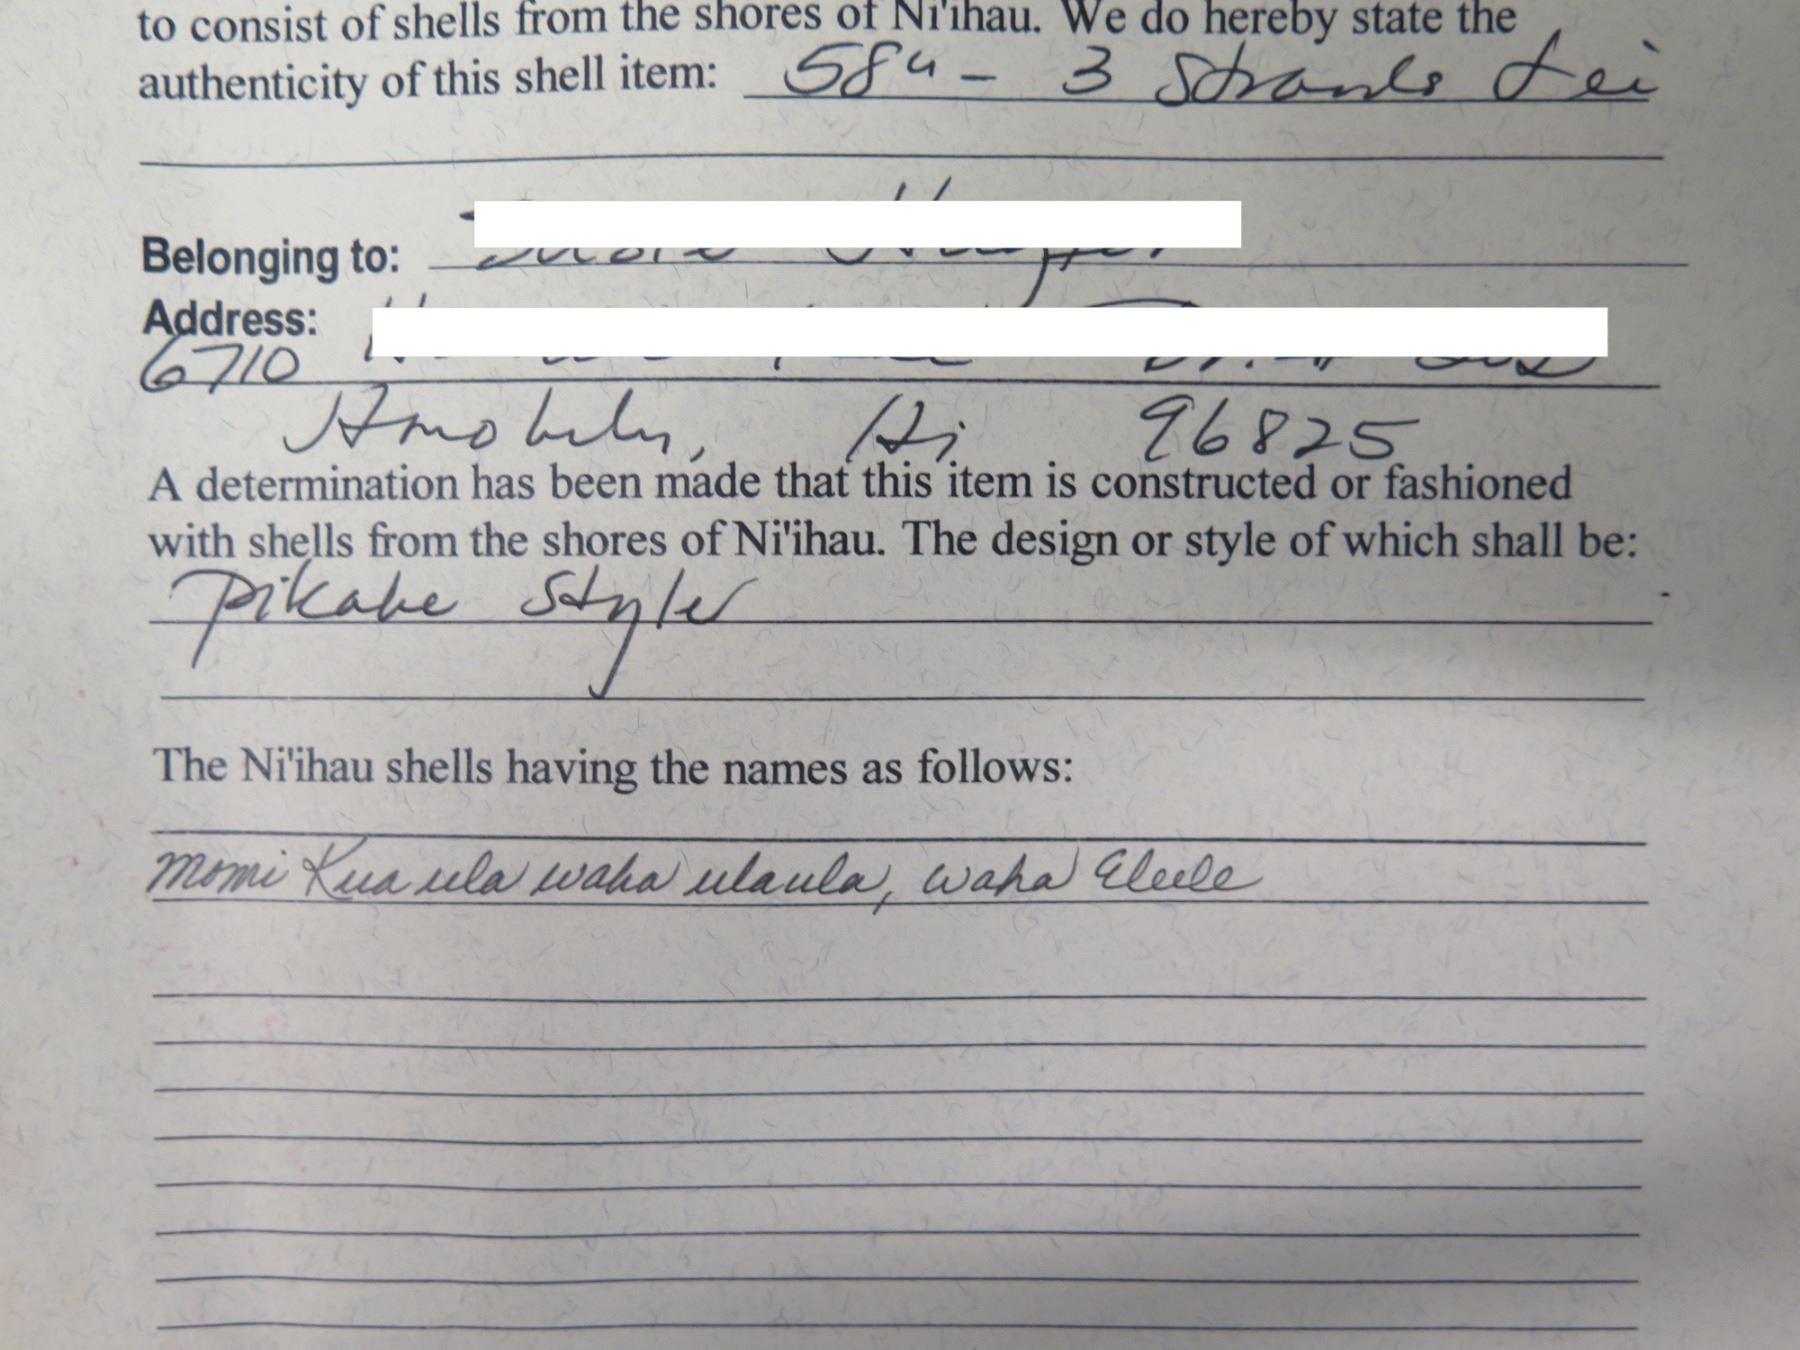 to consist of shells from the shores of Ni'ihau. We do hereby state the
authenticity of this shell item: 58" - 3 Strands Lei
Belonging to:
Address:
6710
Honolulu, Hi 96825
A determination has been made that this item is constructed or fashioned
with shells from the shores of Ni'ihau. The design or style of which shall be:
Pikake Style
The Ni'ihau shells having the names as follows:
momi Kua ula waha ulaula, waha Eleele